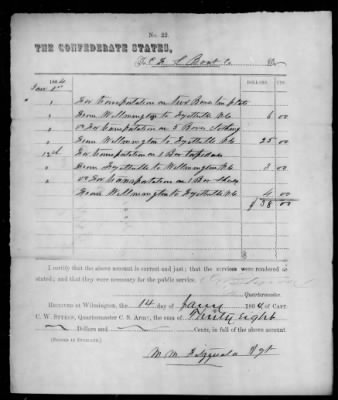 No. 22.
THE CONFEDERATE STATES,
To C F S Boat Co Dr
DOLLARS. CTS.
1864
Jany
" For Transportation on Two Boxes tin plate
" From Wilmington to Fyettville N C 6 00
" For Transportation on 5 Boxes Clothing
" From Wilmington to Fyettville N C 25 00
12th For Transportation on 1 Box
" From Fyettville to Wilmington N C 3 00
" For Transportation on 1 Box
From Wilmington to Fyettville N C 4 00
$ 38 00
I certify that the above account is correct and just; that the services were rendered as
stated; and that they were necessary for the public service.
Quartermaster.
RECEIVED at Wilmington, the 14 of Jany 1864, of CAPT.
C. W. STYRON, Quartermaster C. S. ARMY, the sum of Thirty Eight
Dollars and Cents, in full of the above account
(SIGNED IN DUPLICATE.)
M M Agt